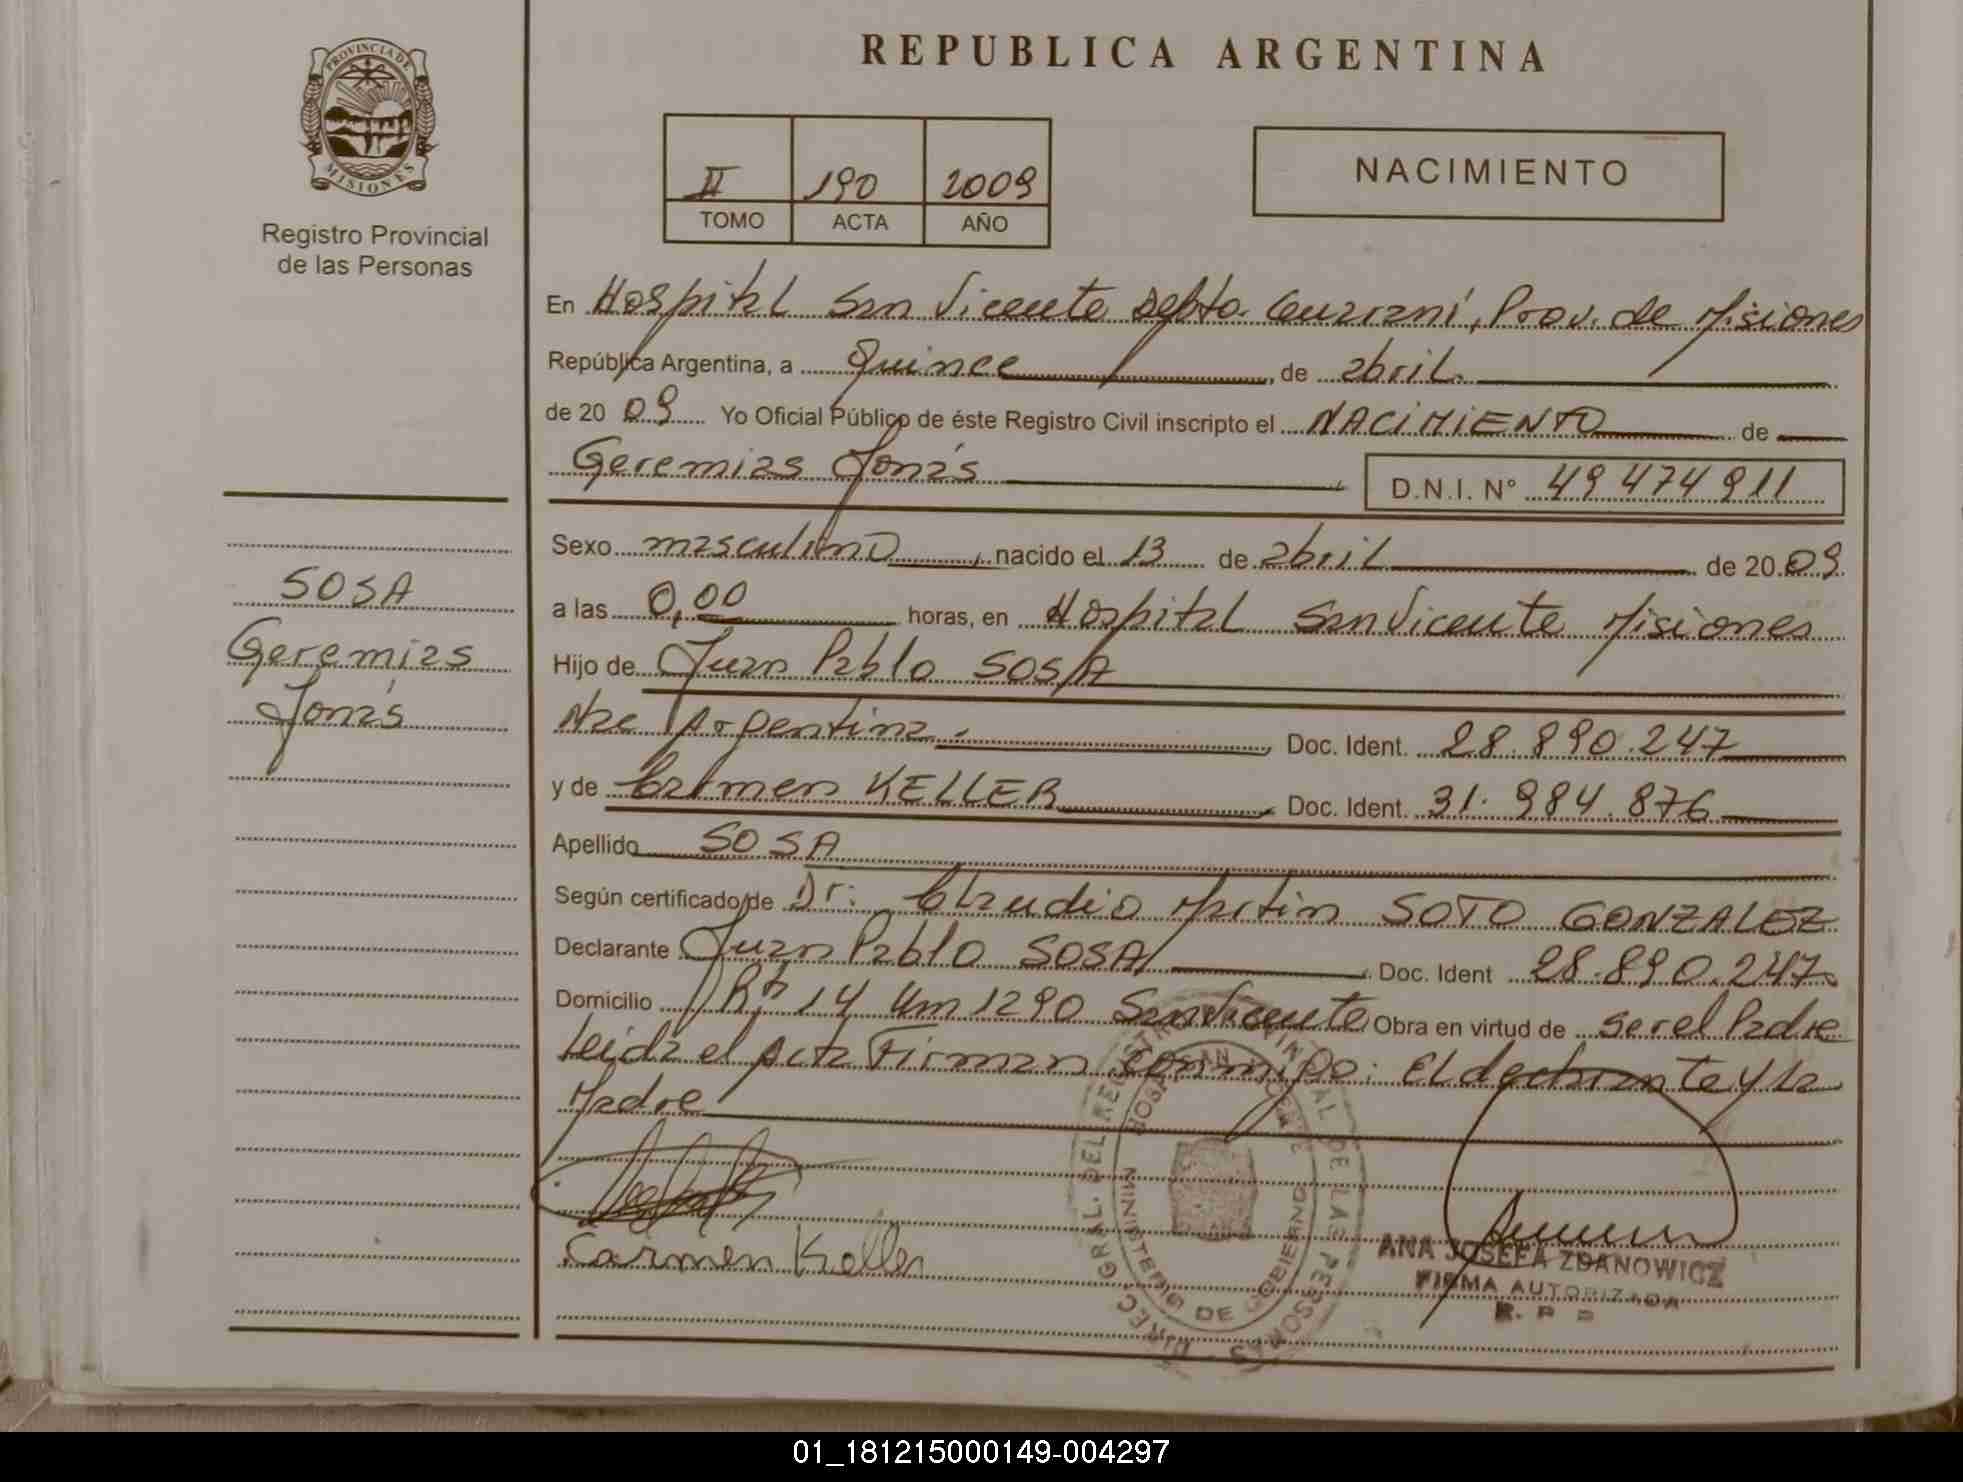 PROVINCIA DE
MISIONES
Registro Provincial
de las Personas
SOSA
Geremias
Jonás
REPUBLICA ARGENTINA
II 190 2009
TOMO ACTA AÑO
NACIMIENTO
En Hospital San Vicente Depto. Guaraní, Prov. de Misiones
República Argentina, a quince, de abril.
de 20 09 Yo Oficial Público de éste Registro Civil inscripto el NACIMIENTO de
Geremias Jonás D.N.I. N° 49 474 911
Sexo masculino, nacido el 13 de abril de 20 09
a las 0,00 horas, en Hospital San Vicente Misiones
Hijo de Juan Pablo SOSA
Nac Argentina. Doc. Ident. 28.890.247
y de Carmen KELLER Doc. Ident. 31.984.876
Apellido SOSA
Según certificado de Dr: Claudio Martin SOTO GONZALEZ
Declarante Juan Pablo SOSA Doc. Ident 28.890.247
Domicilio Rta 14 Km 1290 San Vicente Obra en virtud de ser el Padre
Leida el Acta Firman conmigo: El declarante y La
Madre
Carmen Keller
DIREC. GRAL. DEL REGISTRO PROVINCIAL DE LAS PERSONAS
HOSPITAL SAN VICENTE
MINISTERIO DE GOBIERNO
ANA JOSEFA ZDANOWICZ
FIRMA AUTORIZADA
R. P. P
01_181215000149-004297